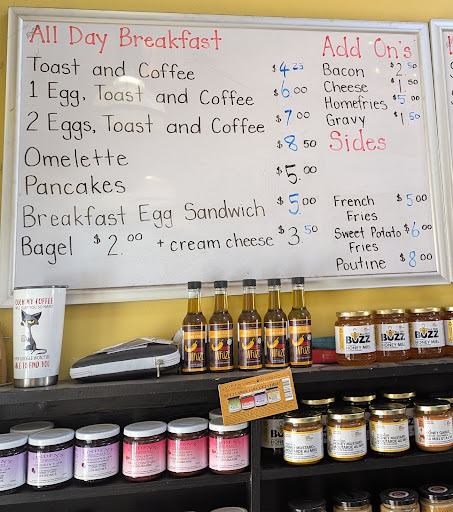 All Day Breakfast
Toast and Coffee $4.25
1 Egg, Toast and Coffee $6.00
2 Eggs, Toast and Coffee $7.00
Omelette $8.50
Pancakes $5.00
Breakfast Egg Sandwich $5.00
Bagel $2.00 + cream cheese $3.50
Add On's
Bacon $2.50
Cheese $1.50
Homefries $5.00
Gravy $1.50
Sides
French $5.00
Fries
Sweet Potato $6.00
Fries
Poutine $8.00
TOUCH MY COFFEE
TO FIND YOU
BUZZ
HONEY
BUZZ
HONEY
BUZZ
HONEY
HONEY MUSTARD
HONEY MUSTARD